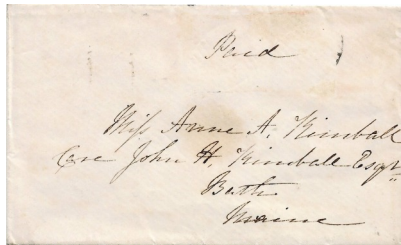 Paid
Miss Anne A. Kimball
Care John H. Kimball Esqr
Bath
Maine